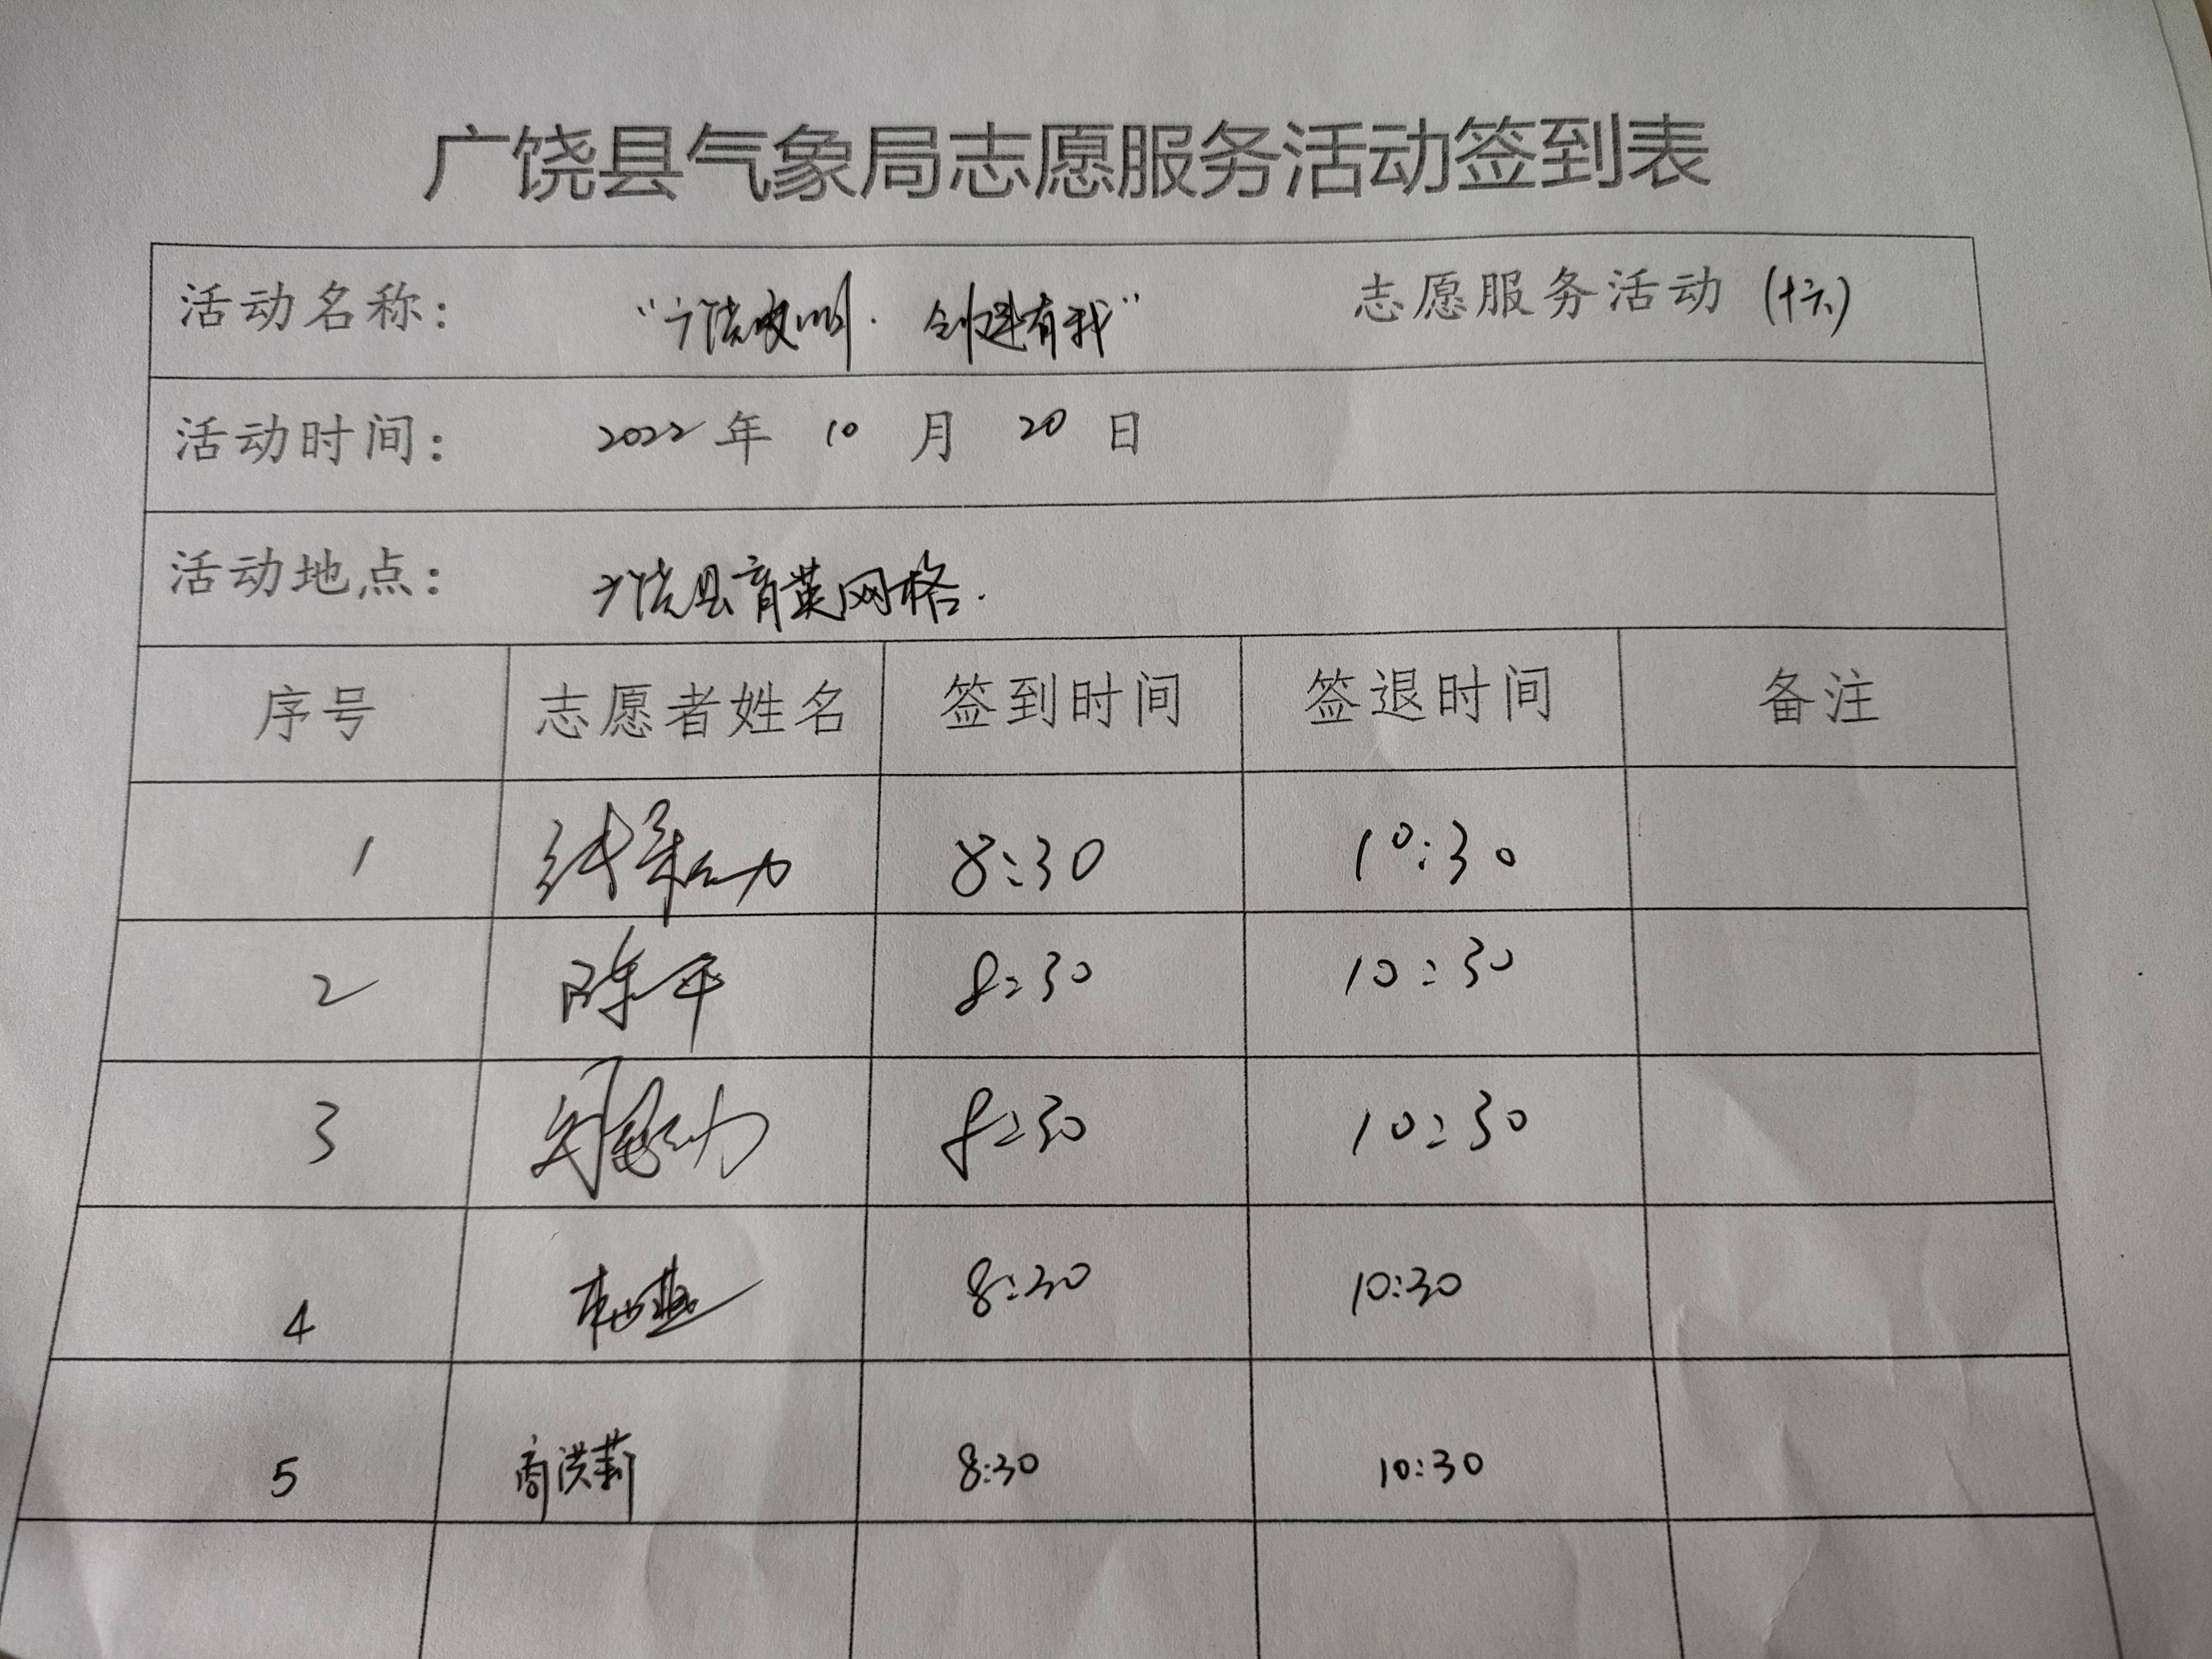 广饶县气象局志愿服务活动签到表
活动名称： “广饶文明· 创建有我” 志愿服务活动（十六）
活动时间： 2022年 10 月 20 日
活动地点： 广饶县育英网格.
序号 志愿者姓名 签到时间 签退时间 备注
1 8:30 10:30
2 陈平 8:30 10:30
3 8:30 10:30
4 8:30 10:30
5 商洪莉 8:30 10:30